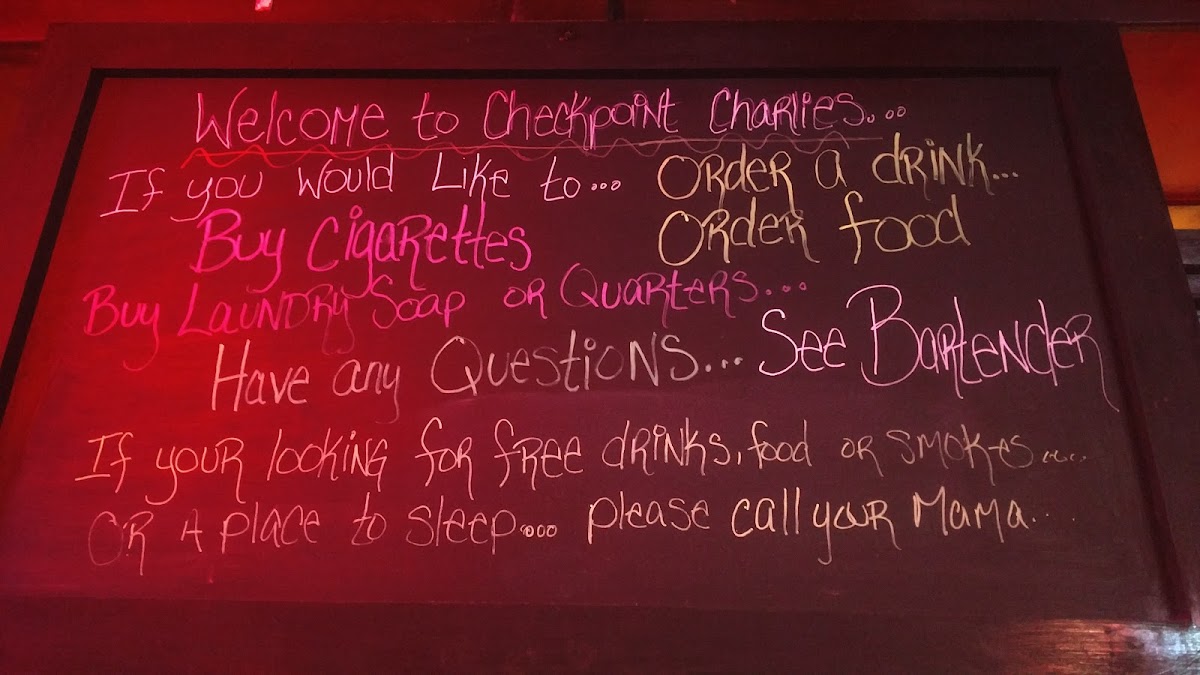 Welcome to Checkpoint Charlies...
If you would Like to... Order a drink...
Buy Cigarettes Order food
Buy Laundry Soap or Quarters...
Have any Questions... See Bartender
If your looking for free drinks, food or smokes....
OR A place to sleep.... please call your Mama...